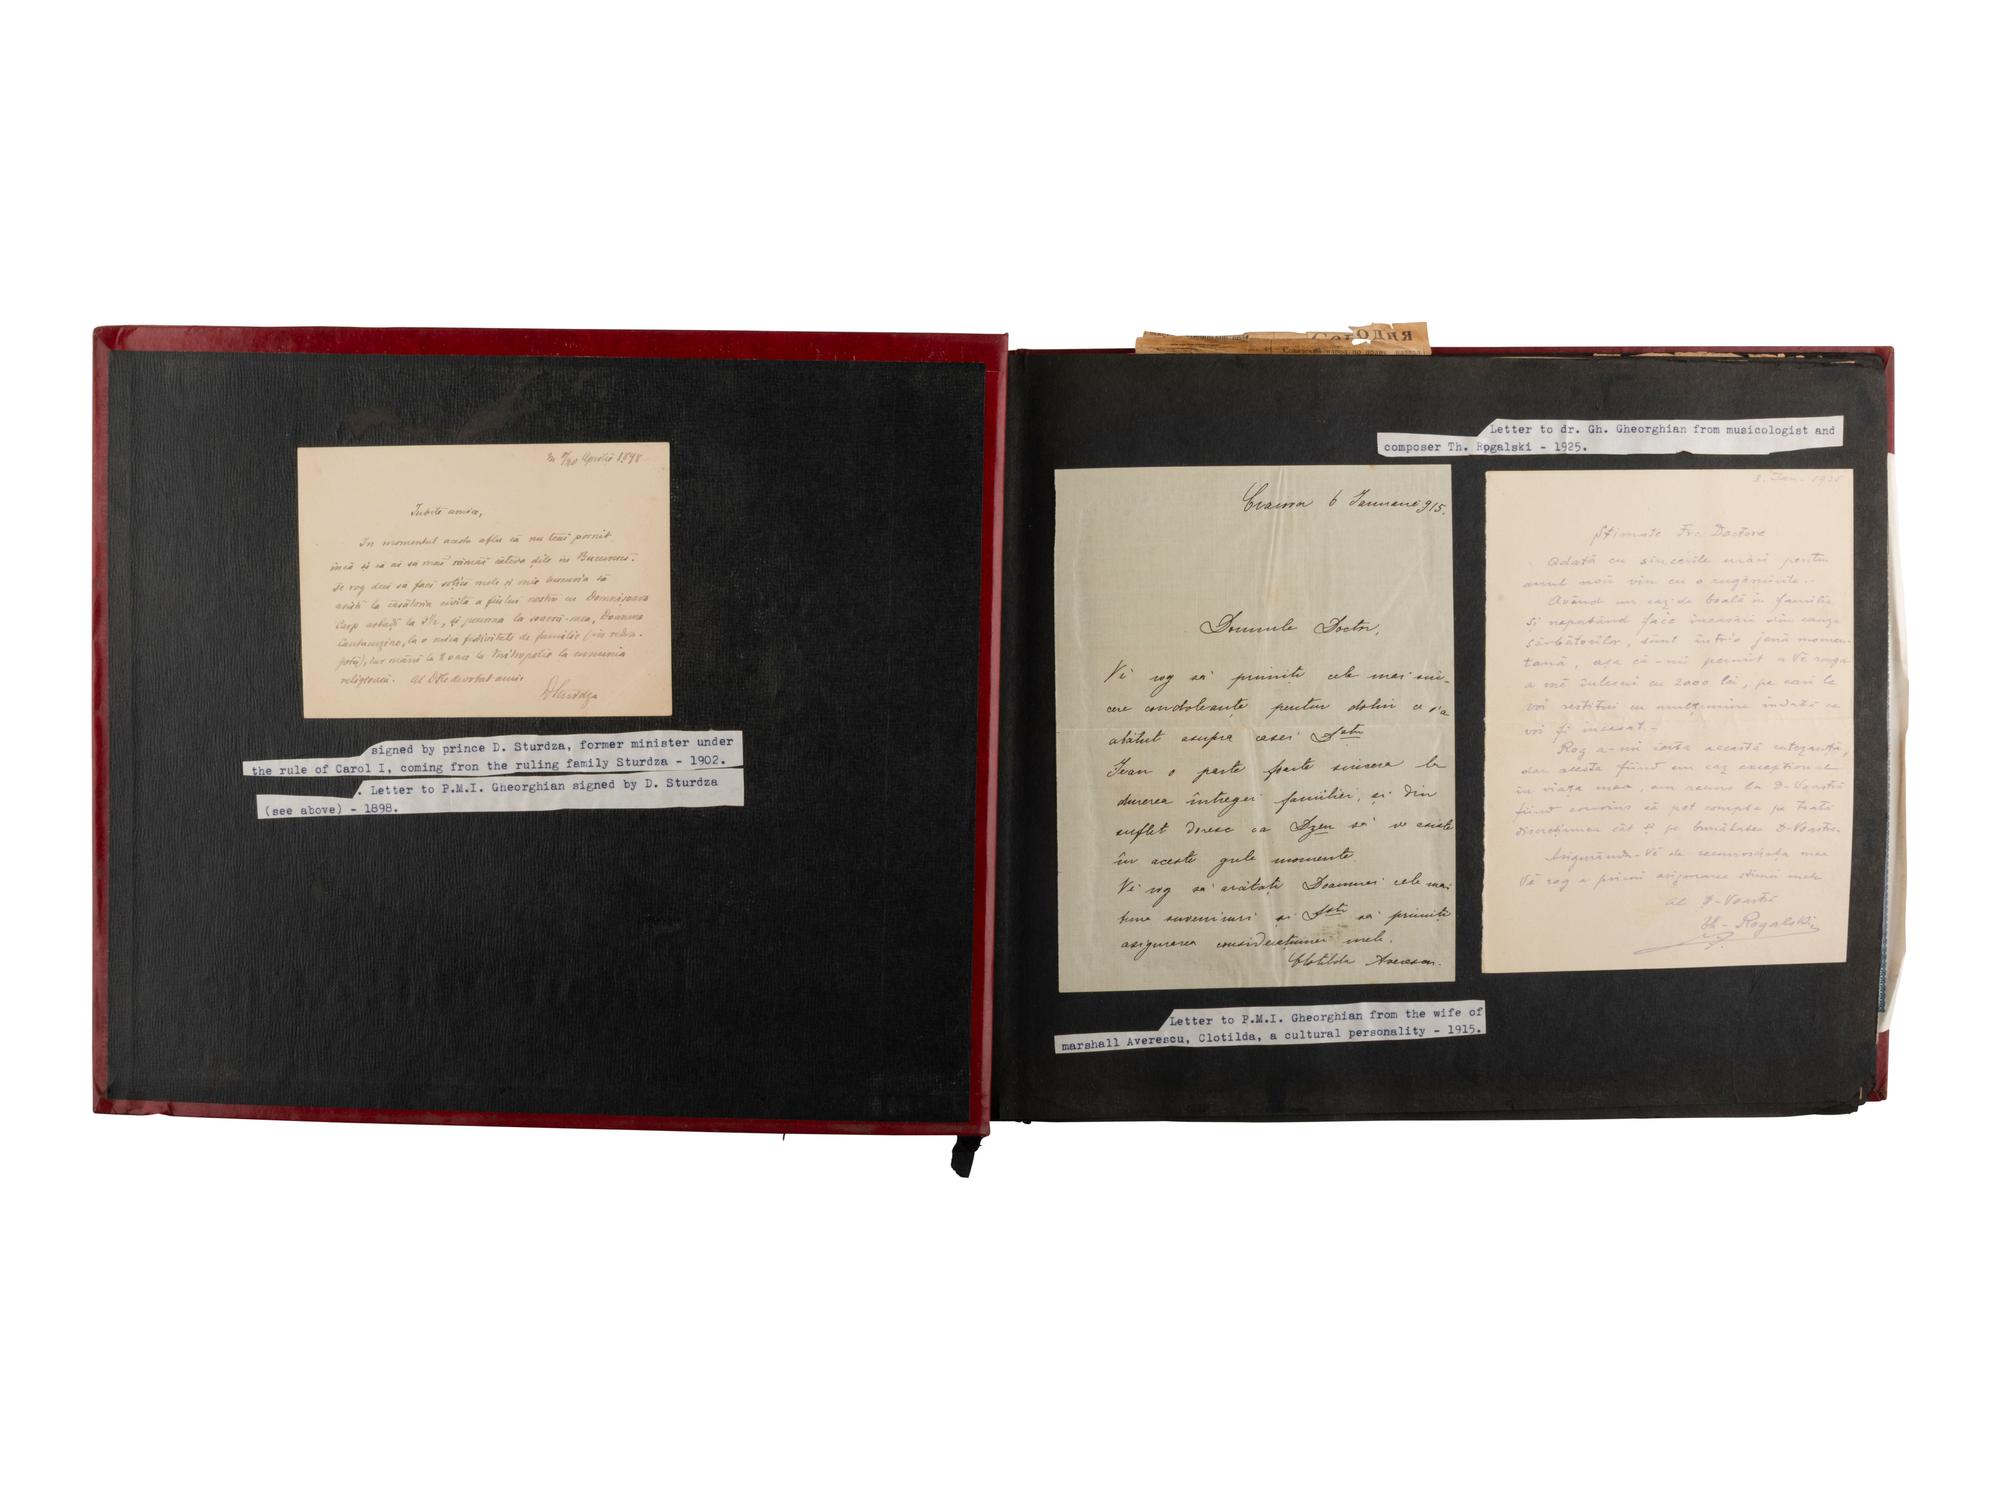 Aprilie 1898
Iubite amice,
In momentul acesta aflu că nu teai pornit
încă și că ai să mai rămăi câteva zile in Bucuresci.
Te rog deci să faci soției mele și mie bucuria să
asisti la căsătoria civila a fiului nostru cu Domnișoara
Carp astăzi la, și pe urma la soacră-mea, Doamna
Cantacuzino, la o mica festivitate de familie (in redin-
gotă), iar mâni la 8 oare la Mitropolie la cununia
religioasă. Al D-tale devotat amic
DSturdza
signed by prince D. Sturdza, former minister under
the rule of Carol I, coming fron the ruling family Sturdza - 1902.
. Letter to P.M.I. Gheorghian signed by D. Sturdza
(see above) - 1898.
Сегодня
Letter to dr. Gh. Gheorghian from musicologist and
composer Th. Rogalski - 1925.
Craiova 6 Ianuarie 915.
Domnule Doctor,
Vĕ rog sa primiți cele mai sin-
cere condoleanțe pentru doliu ce s'a
abătut asupra casei Dstre
Iean o parte foarte sincera la
durerea întregei familiei, și din
suflet doresc ca Dzeu sa ve asiste
în aceste grele momente.
Vĕ rog sa arătați Doamnei cele mai
bune suveniruri și Dstr sa primiti
asigurarea considerațiunei mele.
Clotilda Averescu.
Letter to P.M.I. Gheorghian from the wife of
marshall Averescu, Clotilda, a cultural personality - 1915.
Ian. 1925
Stimate Doctore
Odată cu sincerile urări pentru
anul nou vin cu o rugăminte.-
Având un caz de boală în familie
și neputând face încasări din cauza
sărbătorilor, sunt într'o jenă momen-
tană, așa că-mi permit a Vĕ ruga
a mĕ înlesni cu 2000 lei, pe cari le
voi restitui cu mulțumire îndată ce
voi fi încasat.-
Rog a-mi ierta această cutezanță,
dar acesta fiind un caz excepțional
în viața mea, am recurs la D-Voastră
fiind convins că pot compta pe toată
discrețiunea cât și pe bunătatea D-Voastre.
Asigurându-Vĕ de recunoștința mea
Vĕ rog a primi asigurarea stimei mele
al D-Voastră
Th. Rogalski